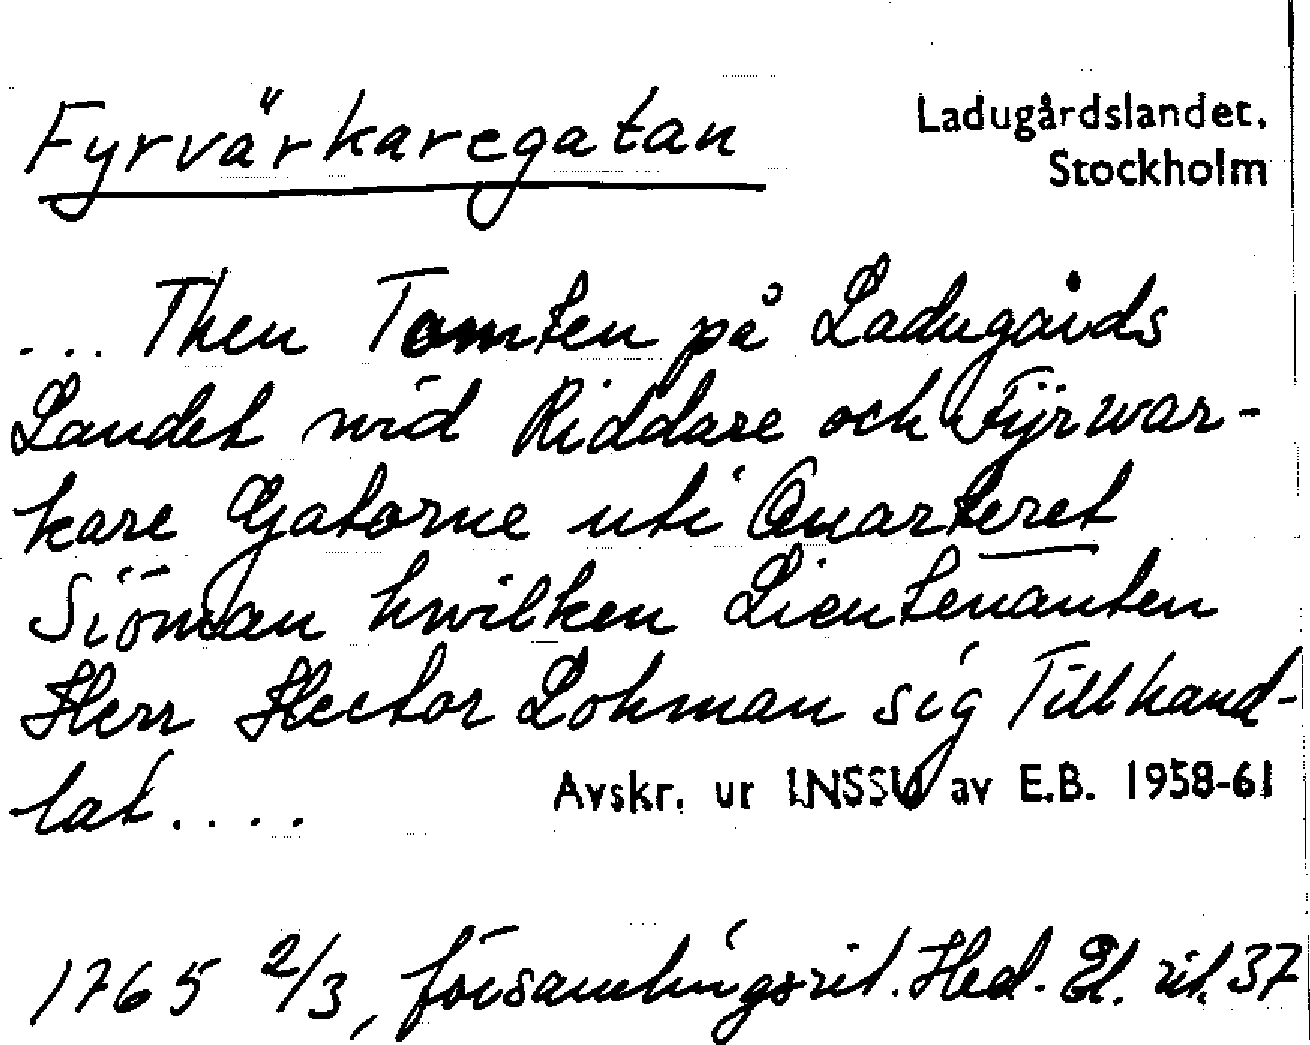 Fyrvärkaregatan
Ladugårdslandet.
Stockholm
... Then Tomten på Ladugårds
Landet wid Riddare och Fÿrwar-
kare Gatorne uti Quarteret
Siöman hwilken Lieutenanten
Herr Hector Lohman sig Tillhand-
lat....
Avskr. ur LNSSU av E.B. 1958-61
1765 2/3, församlingsrit. Hed. El. rit. 37